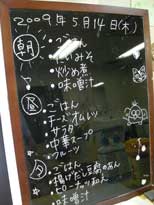 2009年5月14日(木)
朝
・ごはん
・たいみそ
・炒め煮
・味噌汁
昼
・ごはん
・チーズオムレツ
・サラダ
・中華スープ
・フルーツ
・ごはん
・揚げだし豆腐のあん
・ピーナッツ和え
・味噌汁